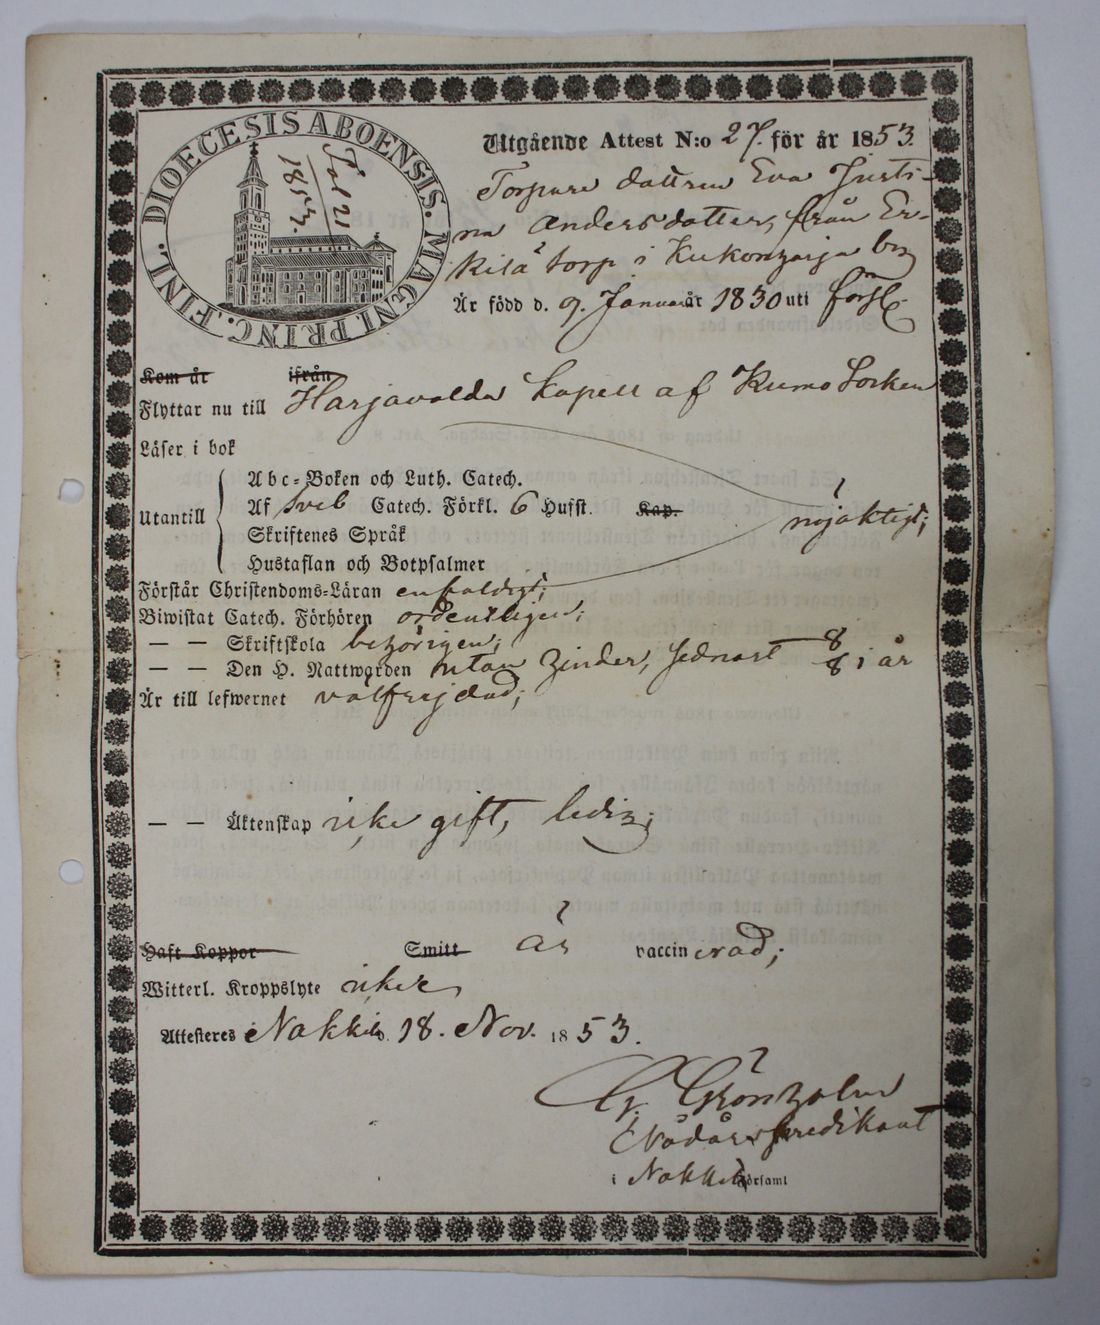 DIOECESIS ABOENSIS. MAGNI. PRINC. FINL.
Fol 21
1853.
Utgående Attest N:o 27. för år 1853.
Torpare dottren Eva Justi-
na Andersdotter, från Er-
kilä torp i Kukonharja by
Är född d. 9. Januar år 1830 uti förs.
Kom år ifrån
Flyttar nu till Harjavalda Capell af Kumo Socken
Läser i bok
Utantill
Abc-Boken och Luth. Catech.
Af Sveb Catech. Förkl. 6 Hufst. Kap. nöjaktigt;
Skriftenes Språk
Hustaflan och Botpsalmer
Förstår Christendoms-Läran enfaldigt;
Biwistat Catech. Förhören ordentligen;
— — Skriftskola behörigen;
— — Den H. Nattwarden utan hinder, sednast 8/8 i år
Är till lefwernet välfrejdad;
— — Äktenskap icke gift, ledig;
Haft Koppor Smitt är vaccinerad;
Witterl. Kroppslyte icke
Attesteres Nakkila d. 18. Nov. 1853.
G. Grönholm
Nådårspredikant
i Nakkila Församl